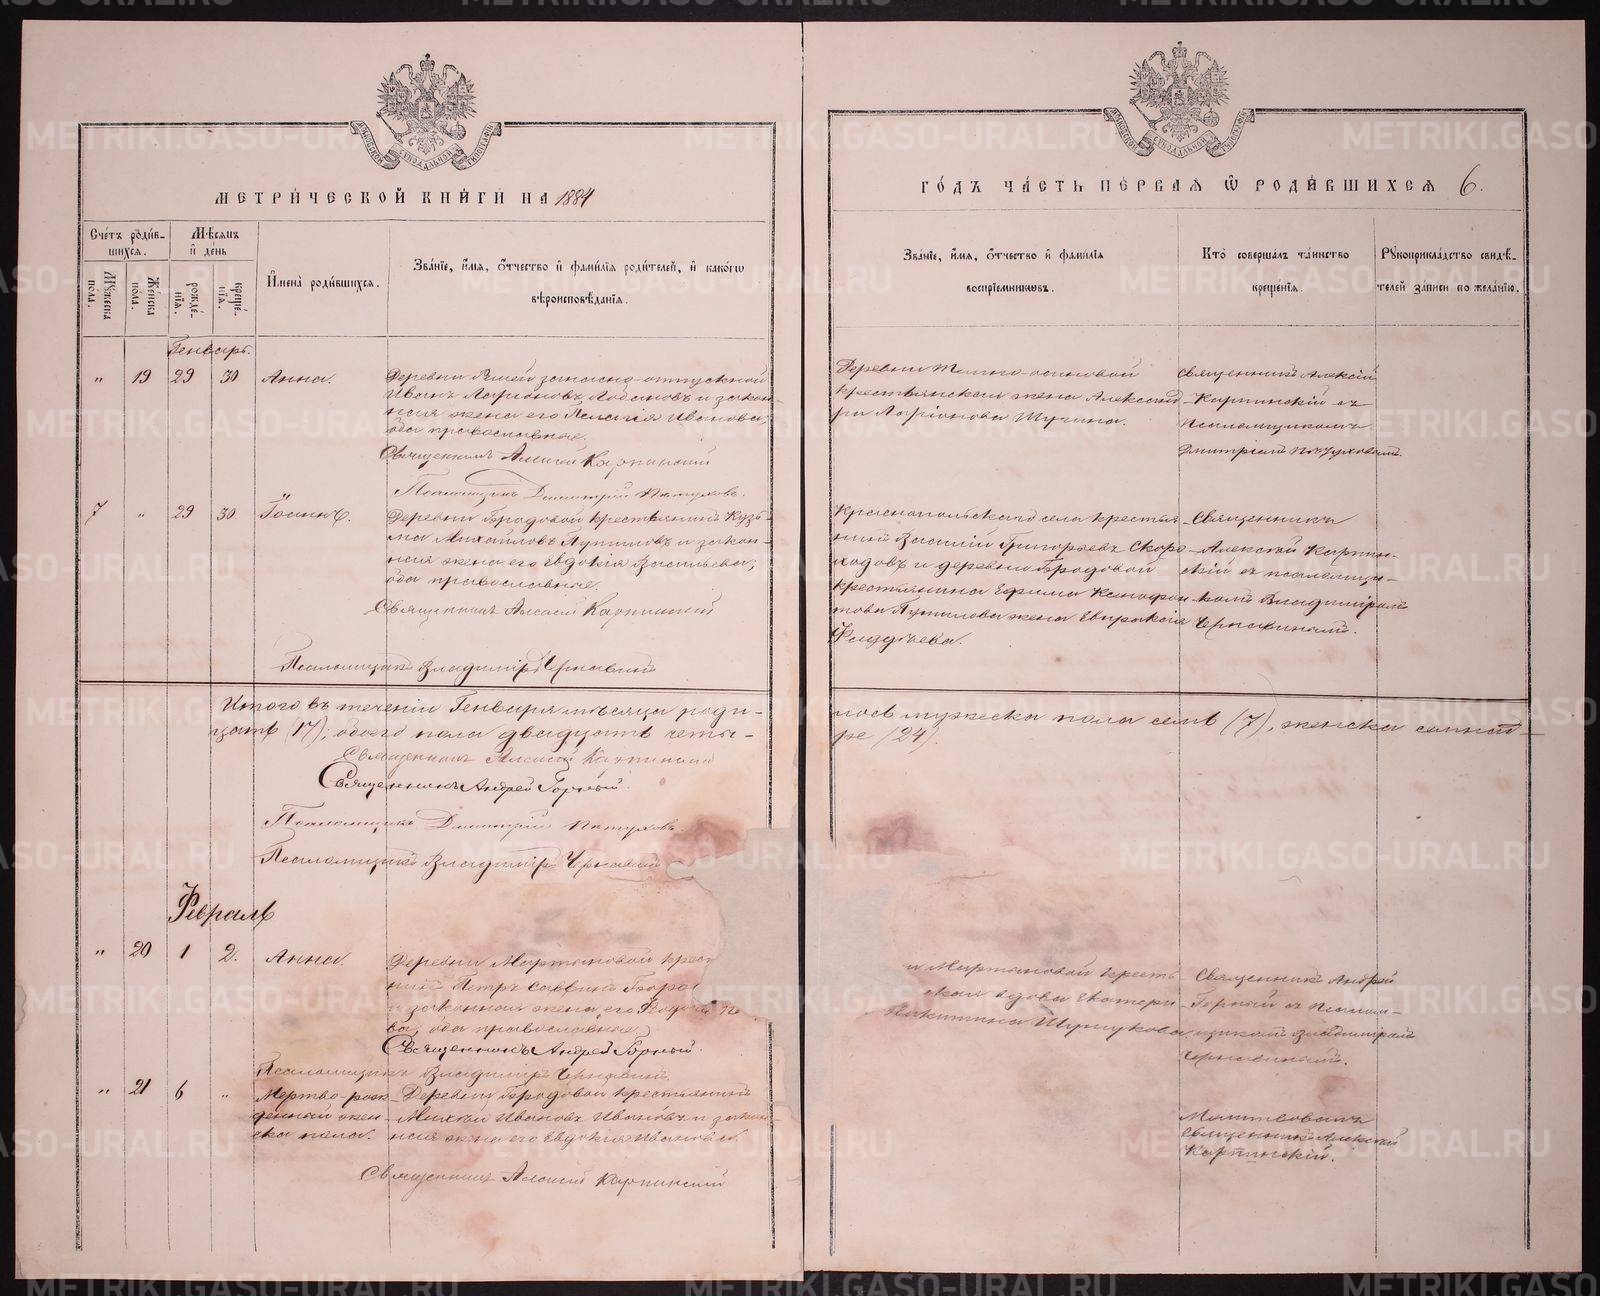 МЕТРИ́ЧЕСКОЙ КНИ́ГИ НА 1884
ГО́ДЪ ЧА́СТЬ ПЕ́РВАЯ Ѿ РОДИ́ВШИХСЯ 6.
Сче́тъ роди́в-
шихся.
Мꙋжеска по́ла.
Же́нска по́ла.
Мѣсяцъ и де́нь
рожде́-
нїя.
креще́-
нїя.
Имена̀ роди́вшихся.
Зва́нїе, и́мя, о́тчество и фами́лїя роди́телей, и како́гѡ
вѣроисповѣ́данїя.
Зва́нїе, и́мя, о́тчество и фами́лїя
воспрїе́мниковъ.
Кто̀ соверша́лъ та́инство
креще́нїя.
Рꙋкоприкла́дство свидѣ́-
телей за́писи по жела́нїю.
Генварь.
" 19 29 30 Анна.
Деревни запасно-отпускной
Иванъ Ларионовъ Лобановъ и закон-
ная жена его Пелагія Иванова;
оба православные.
Священникъ Алексій Карпинскій
Псаломщикъ Димитрій Пѣтуховъ.
Деревни осиновой
крестьянская жена Александ-
ра Ларіонова
Священникъ Алексій
Карпинскій съ
Псаломщикомъ
Дмитріемъ Пѣтуховымъ.
7 " 29 30 Іоаннъ.
Деревни Бродовой крестьянинъ Кузь-
ма Михайловъ Пупиловъ и закон-
ная жена его Евдокія Васильева;
оба православные.
Священникъ Алексій Карпинскій
Псаломщикъ Владиміръ Чернавинъ
Краснопольскаго села крестья-
нинъ Василій Григорьевъ Скоро-
ходовъ и деревни Бродовой
крестьянина Ефима
Пупилова жена Евпраксія
Фаддѣева.
Священникъ
Алексѣй Карпин-
скій съ псаломщи-
комъ Владиміромъ
Чернавинымъ.
Итого въ теченіи Генваря мѣсяца роди-
лось мужеска пола семь (7), женска семнад-
цать (17); обоего пола двадцать четы-
ре (24).
Священникъ Алексій Карпинскій
Священникъ Андрей Горный.
Псаломщикъ Димитрій Пѣтуховъ
Псаломщикъ Владиміръ Чернавинъ
Февраль
" 20 1 2. Анна.
Деревни Мартыновой крест
нинъ Петръ Саввинъ
и законная жена его
ва; оба православные.
Священникъ Андрей Горный.
Псаломщикъ Владиміръ Чернавинъ.
и Мартыновой кресть
ская вдова Екатери
Никитина
Священникъ Андрей
Горный съ Псалом-
щикомъ Владиміромъ
Чернавинымъ.
" 21 6 " Мертво-рож-
денный жен-
ска пола.
Деревни Бродовой крестьянинъ
Михаилъ Ивановъ Ивановъ и закон-
ная жена его Евдокія Иванова.
Священникъ Алексій Карпинскій
Молитвовалъ
Священникъ Алексѣй
Карпинскій.
METRIKI.GASO-URAL.RU